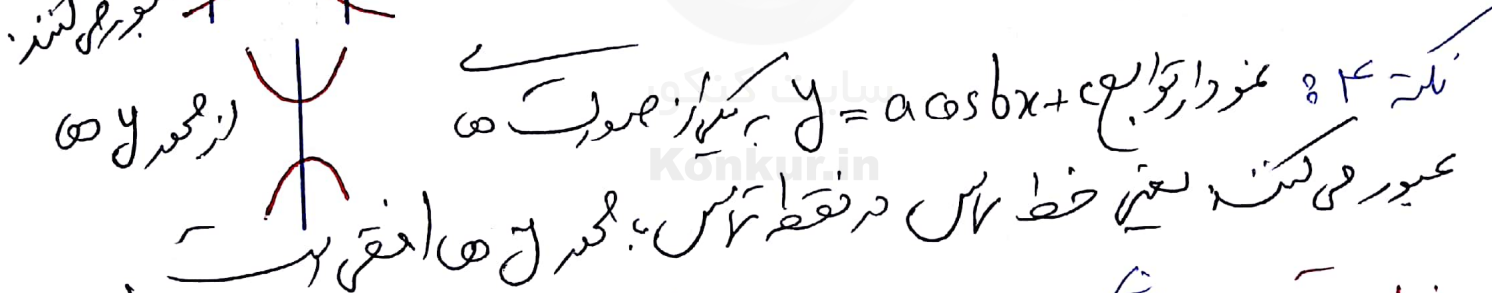 عبور می‌کنند.
نکته ۴: نمودار توابع y = a cos bx + c به یکی از صورت‌های از محور y ها
عبور می‌کنند، یعنی خط مماس در نقطه تماس با محور y ها افقی است
سایت کنکور
Konkur.in